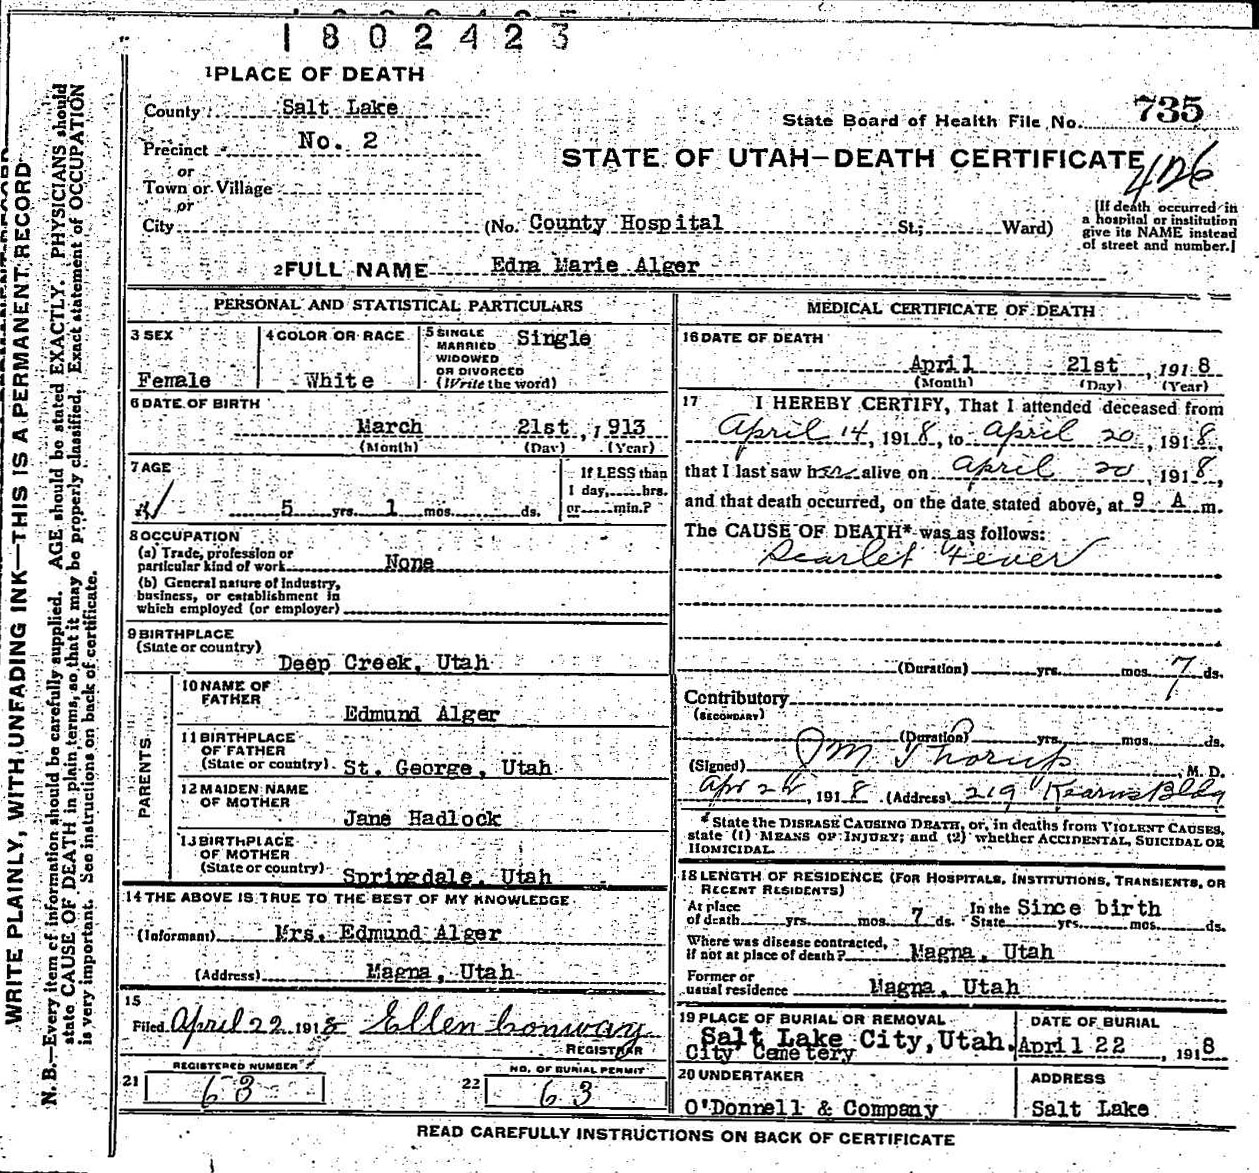 1802423
1 PLACE OF DEATH
County Salt Lake
State Board of Health File No. 735
Precinct No. 2
STATE OF UTAH—DEATH CERTIFICATE
426
or
Town or Village
or
City (No. County Hospital St.; Ward)
[If death occurred in a hospital or institution give its NAME instead of street and number.]
2 FULL NAME Edna Marie Alger
PERSONAL AND STATISTICAL PARTICULARS
3 SEX
Female
4 COLOR OR RACE
White
5 SINGLE
MARRIED
WIDOWED
OR DIVORCED
(Write the word)
Single
6 DATE OF BIRTH
March 21st, 1913
(Month) (Day) (Year)
7 AGE
5 yrs. 1 mos. ds.
If LESS than
1 day, hrs.
or min.?
8 OCCUPATION
(a) Trade, profession or
particular kind of work None
(b) General nature of Industry,
business, or establishment in
which employed (or employer)
9 BIRTHPLACE
(State or country)
Deep Creek, Utah
PARENTS
10 NAME OF
FATHER
Edmund Alger
11 BIRTHPLACE
OF FATHER
(State or country) St. George, Utah
12 MAIDEN NAME
OF MOTHER
Jane Hadlock
13 BIRTHPLACE
OF MOTHER
(State or country) Springdale, Utah
14 THE ABOVE IS TRUE TO THE BEST OF MY KNOWLEDGE
(Informant) Mrs. Edmund Alger
(Address) Magna, Utah
15
Filed April 22 1918 Ellen Conway
REGISTRAR
REGISTERED NUMBER
21 63
NO. OF BURIAL PERMIT
22 63
MEDICAL CERTIFICATE OF DEATH
16 DATE OF DEATH
April 21st, 1918
(Month) (Day) (Year)
17 I HEREBY CERTIFY, That I attended deceased from
April 14, 1918, to April 20, 1918,
that I last saw her alive on April 20, 1918,
and that death occurred, on the date stated above, at 9 A m.
The CAUSE OF DEATH* was as follows:
Scarlet Fever
(Duration) yrs. mos. 7 ds.
Contributory
(SECONDARY)
(Duration) yrs. mos. ds.
(Signed) J M Thorup, M. D.
Apr 22, 1918 (Address) 219 Kearns Bldg
* State the DISEASE CAUSING DEATH, or, in deaths from VIOLENT CAUSES,
state (1) MEANS OF INJURY; and (2) whether ACCIDENTAL, SUICIDAL OR
HOMICIDAL.
18 LENGTH OF RESIDENCE (FOR HOSPITALS, INSTITUTIONS, TRANSIENTS, OR
RECENT RESIDENTS)
At place
of death yrs. mos. 7 ds. In the State Since birth yrs. mos. ds.
Where was disease contracted,
if not at place of death? Magna, Utah
Former or
usual residence Magna, Utah
19 PLACE OF BURIAL OR REMOVAL
Salt Lake City, Utah.
City Cemetery
DATE OF BURIAL
April 22, 1918
20 UNDERTAKER
O'Donnell & Company
ADDRESS
Salt Lake
READ CAREFULLY INSTRUCTIONS ON BACK OF CERTIFICATE
WRITE PLAINLY, WITH UNFADING INK—THIS IS A PERMANENT RECORD
N. B.—Every item of information should be carefully supplied. AGE should be stated EXACTLY. PHYSICIANS should
state CAUSE OF DEATH in plain terms, so that it may be properly classified. Exact statement of OCCUPATION
is very important. See instructions on back of certificate.